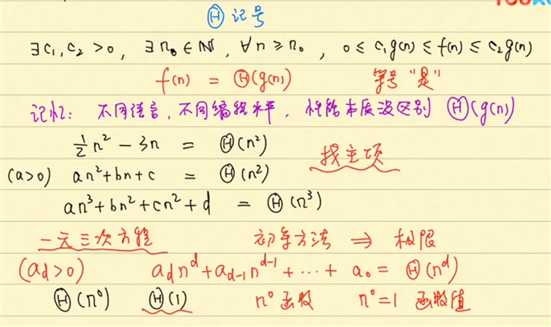 Θ记号
∃c₁,c₂ >0, ∃n₀∈ℕ, ∀n≥n₀, 0≤c₁g(n)≤f(n)≤c₂g(n)
f(n) = Θ(g(n)) 等号"是"
记忆: 不同语言,不同编程水平,性能本质没区别 Θ(g(n))
½n²-3n = Θ(n²)
找主项
(a>0) an²+bn+c = Θ(n²)
an³+bn²+cn²+d = Θ(n³)
一元三次方程 初等方法 ⇒ 极限
(a_d>0) a_d n^d+a_{d-1} n^{d-1}+⋯+a₀ = Θ(n^d)
Θ(n⁰) Θ(1) n⁰函数 n⁰=1 函数值